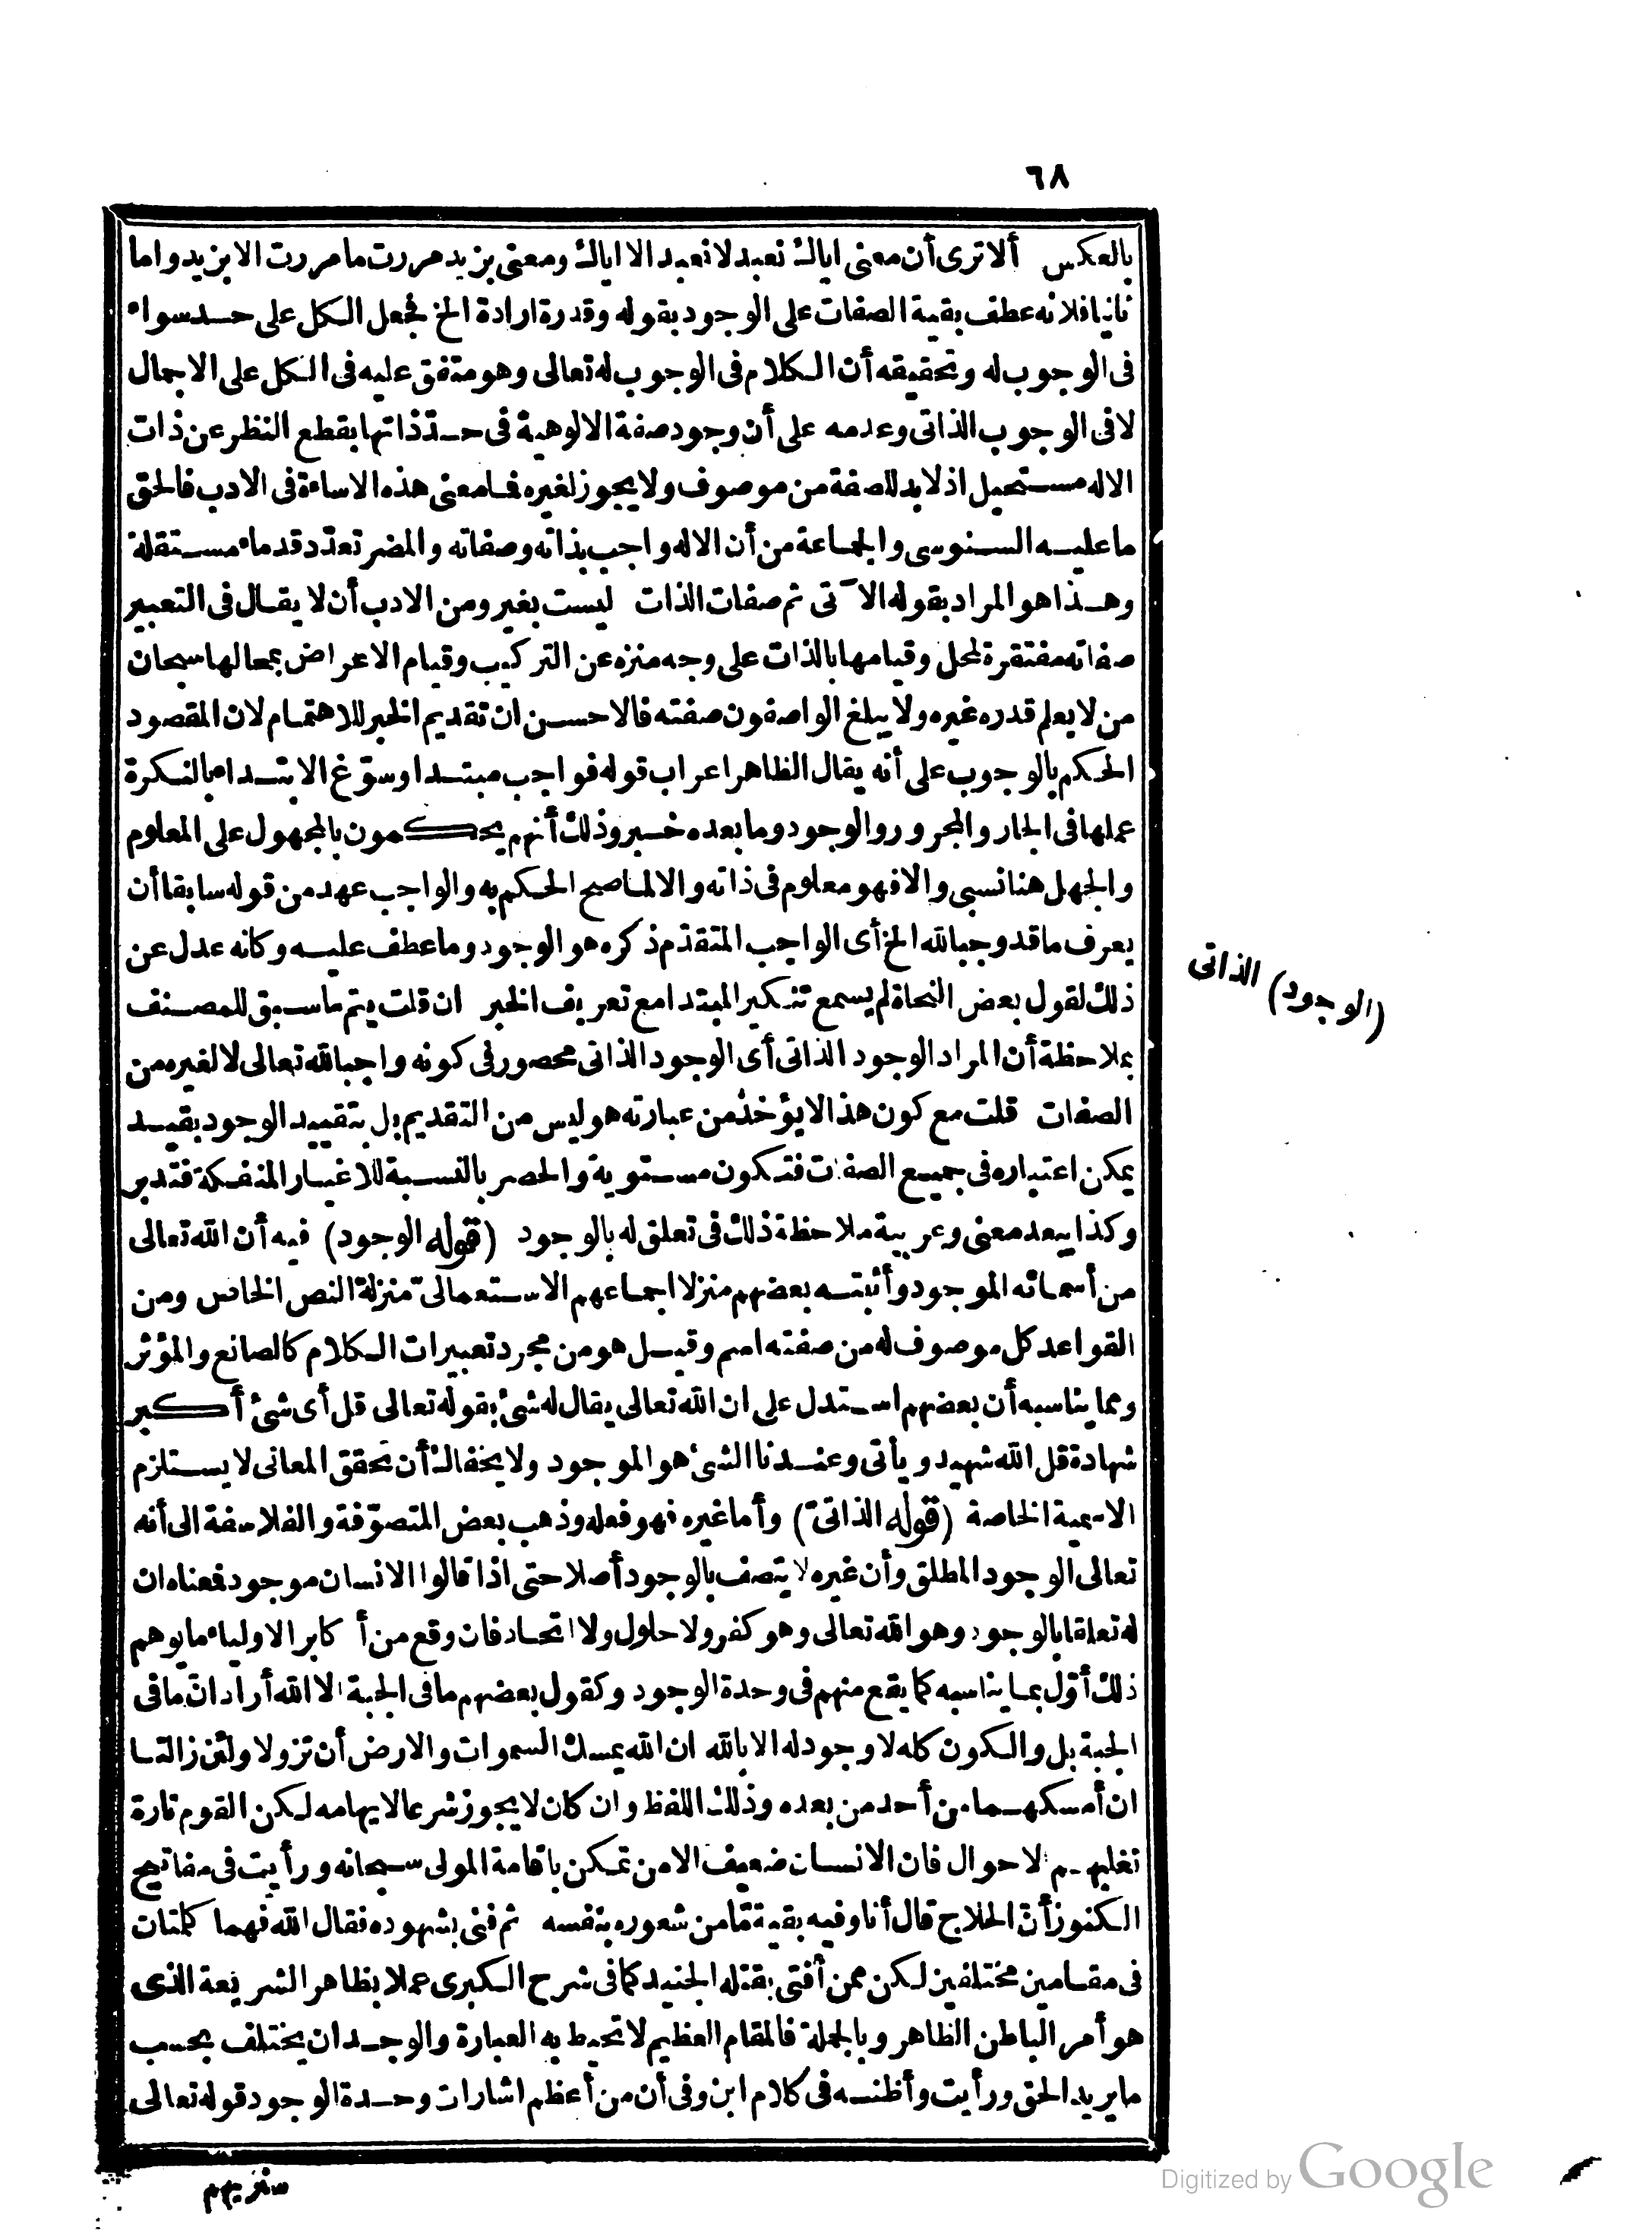 ٦٨
بالعكس ألا ترى أن معنى اياك نعبد لا نعبد الا اياك ومعنى بزيد مررت ما مررت الا بزيد واما
ثانيا فلانه عطف بقية الصفات على الوجود بقوله وقدرة ارادة الخ فجعل الكل على حد سواء
فى الوجوب له وتحقيقه أن الكلام فى الوجوب له تعالى وهو متفق عليه فى الكل على الاجمال
لا فى الوجوب الذاتى وعدمه على أن وجود صفة الالوهية فى حد ذاتها بقطع النظر عن ذات
الاله مستحيل اذ لا بد للصفة من موصوف ولا يجوز لغيره فما معنى هذه الاساءة فى الادب فالحق
ما عليه السنوسى والجماعة من أن الاله واجب بذاته وصفاته والمضر تعدّد قدماء مستقلة
وهذا هو المراد بقوله الآتى ثم صفات الذات ليست بغير ومن الادب أن لا يقال فى التعبير
صفاته مفتقرة لمحل وقيامها بالذات على وجه منزه عن التركيب وقيام الاعراض بمحالها سبحان
من لا يعلم قدره غيره ولا يبلغ الواصفون صفته فالاحسن ان تقديم الخبر للاهتمام لان المقصود
الحكم بالوجوب على أنه يقال الظاهر اعراب قوله فواجب مبتدا وسوّغ الابتداء بالنكرة
عملها فى الجار والمجرور والوجود وما بعده خبر وذلك أنهم يحكمون بالمجهول على المعلوم
والجهل هنا نسبى والا فهو معلوم فى ذاته والا لما صح الحكم به والواجب عهد من قوله سابقا أن
يعرف ما قد وجبا لله الخ أى الواجب المتقدّم ذكره هو الوجود وما عطف عليه وكانه عدل عن
ذلك لقول بعض النحاة لم يسمع تنكير المبتدا مع تعريف الخبر ان قلت يتم ما سبق للمصنف
بملاحظة أن المراد الوجود الذاتى أى الوجود الذاتى محصور فى كونه واجبا لله تعالى لا لغيره من
الصفات قلت مع كون هذا لا يؤخذ من عبارته هو ليس من التقديم بل بتقييد الوجود بقيد
يمكن اعتباره فى جميع الصفات فتكون مستوية والحصر بالنسبة للاغيار المنفكة فتدبر
وكذا يبعد معنى وعربية ملاحظة ذلك فى تعلق له بالوجود (قوله الوجود) فيه أن الله تعالى
من أسمائه الموجود وأثبته بعضهم منزلا اجماعهم الاستعمالىّ منزلة النص الخاص ومن
القواعد كل موصوف له من صفته اسم وقيل هو من مجرد تعبيرات الكلام كالصانع والمؤثر
ومما يناسبه أن بعضهم استدل على ان الله تعالى يقال له شئ بقوله تعالى قل أى شئ أكبر
شهادة قل الله شهيد ويأتى وعندنا الشئ هو الموجود ولا يخفاك أن تحقق المعانى لا يستلزم
الاسمية الخاصة (قوله الذاتىّ) وأما غيره فهو فعله وذهب بعض المتصوّفة والفلاسفة الى أنه
تعالى الوجود المطلق وأن غيره لا يتصف بالوجود أصلا حتى اذا قالوا الانسان موجود فمعناه ان
له تعلقا بالوجود وهو الله تعالى وهو كفر ولا حلول ولا اتحاد فان وقع من أكابر الاولياء ما يوهم
ذلك أوّل بما يناسبه كما يقع منهم فى وحدة الوجود وكقول بعضهم ما فى الجبة الا الله أراد انّ ما فى
الجبة بل والكون كله لا وجود له الا بالله ان الله يمسك السموات والارض أن تزولا ولئن زالتا
ان أمسكهما من أحد من بعده وذلك اللفظ وان كان لا يجوز شرعا لايهامه لكن القوم تارة
تغلبهم الاحوال فان الانسان ضعيف الا من تمكن باقامة المولى سبحانه ورأيت فى مفاتيح
الكنوز أنّ الحلاج قال أنا وفيه بقية مّا من شعوره بنفسه ثم فنى بشهوده فقال الله فهما كلمتان
فى مقامين مختلفين لكن ممن أفتى بقتله الجنيد كما فى شرح الكبرى عملا بظاهر الشريعة الذى
هو أمر الباطن الظاهر وبالجملة فالمقام العظيم لا تحيط به العبارة والوجدان يختلف بحسب
ما يريد الحق ورأيت وأظنه فى كلام ابن وفى أن من أعظم اشارات وحدة الوجود قوله تعالى
سنريهم
(الوجود) الذاتى
Digitized by Google